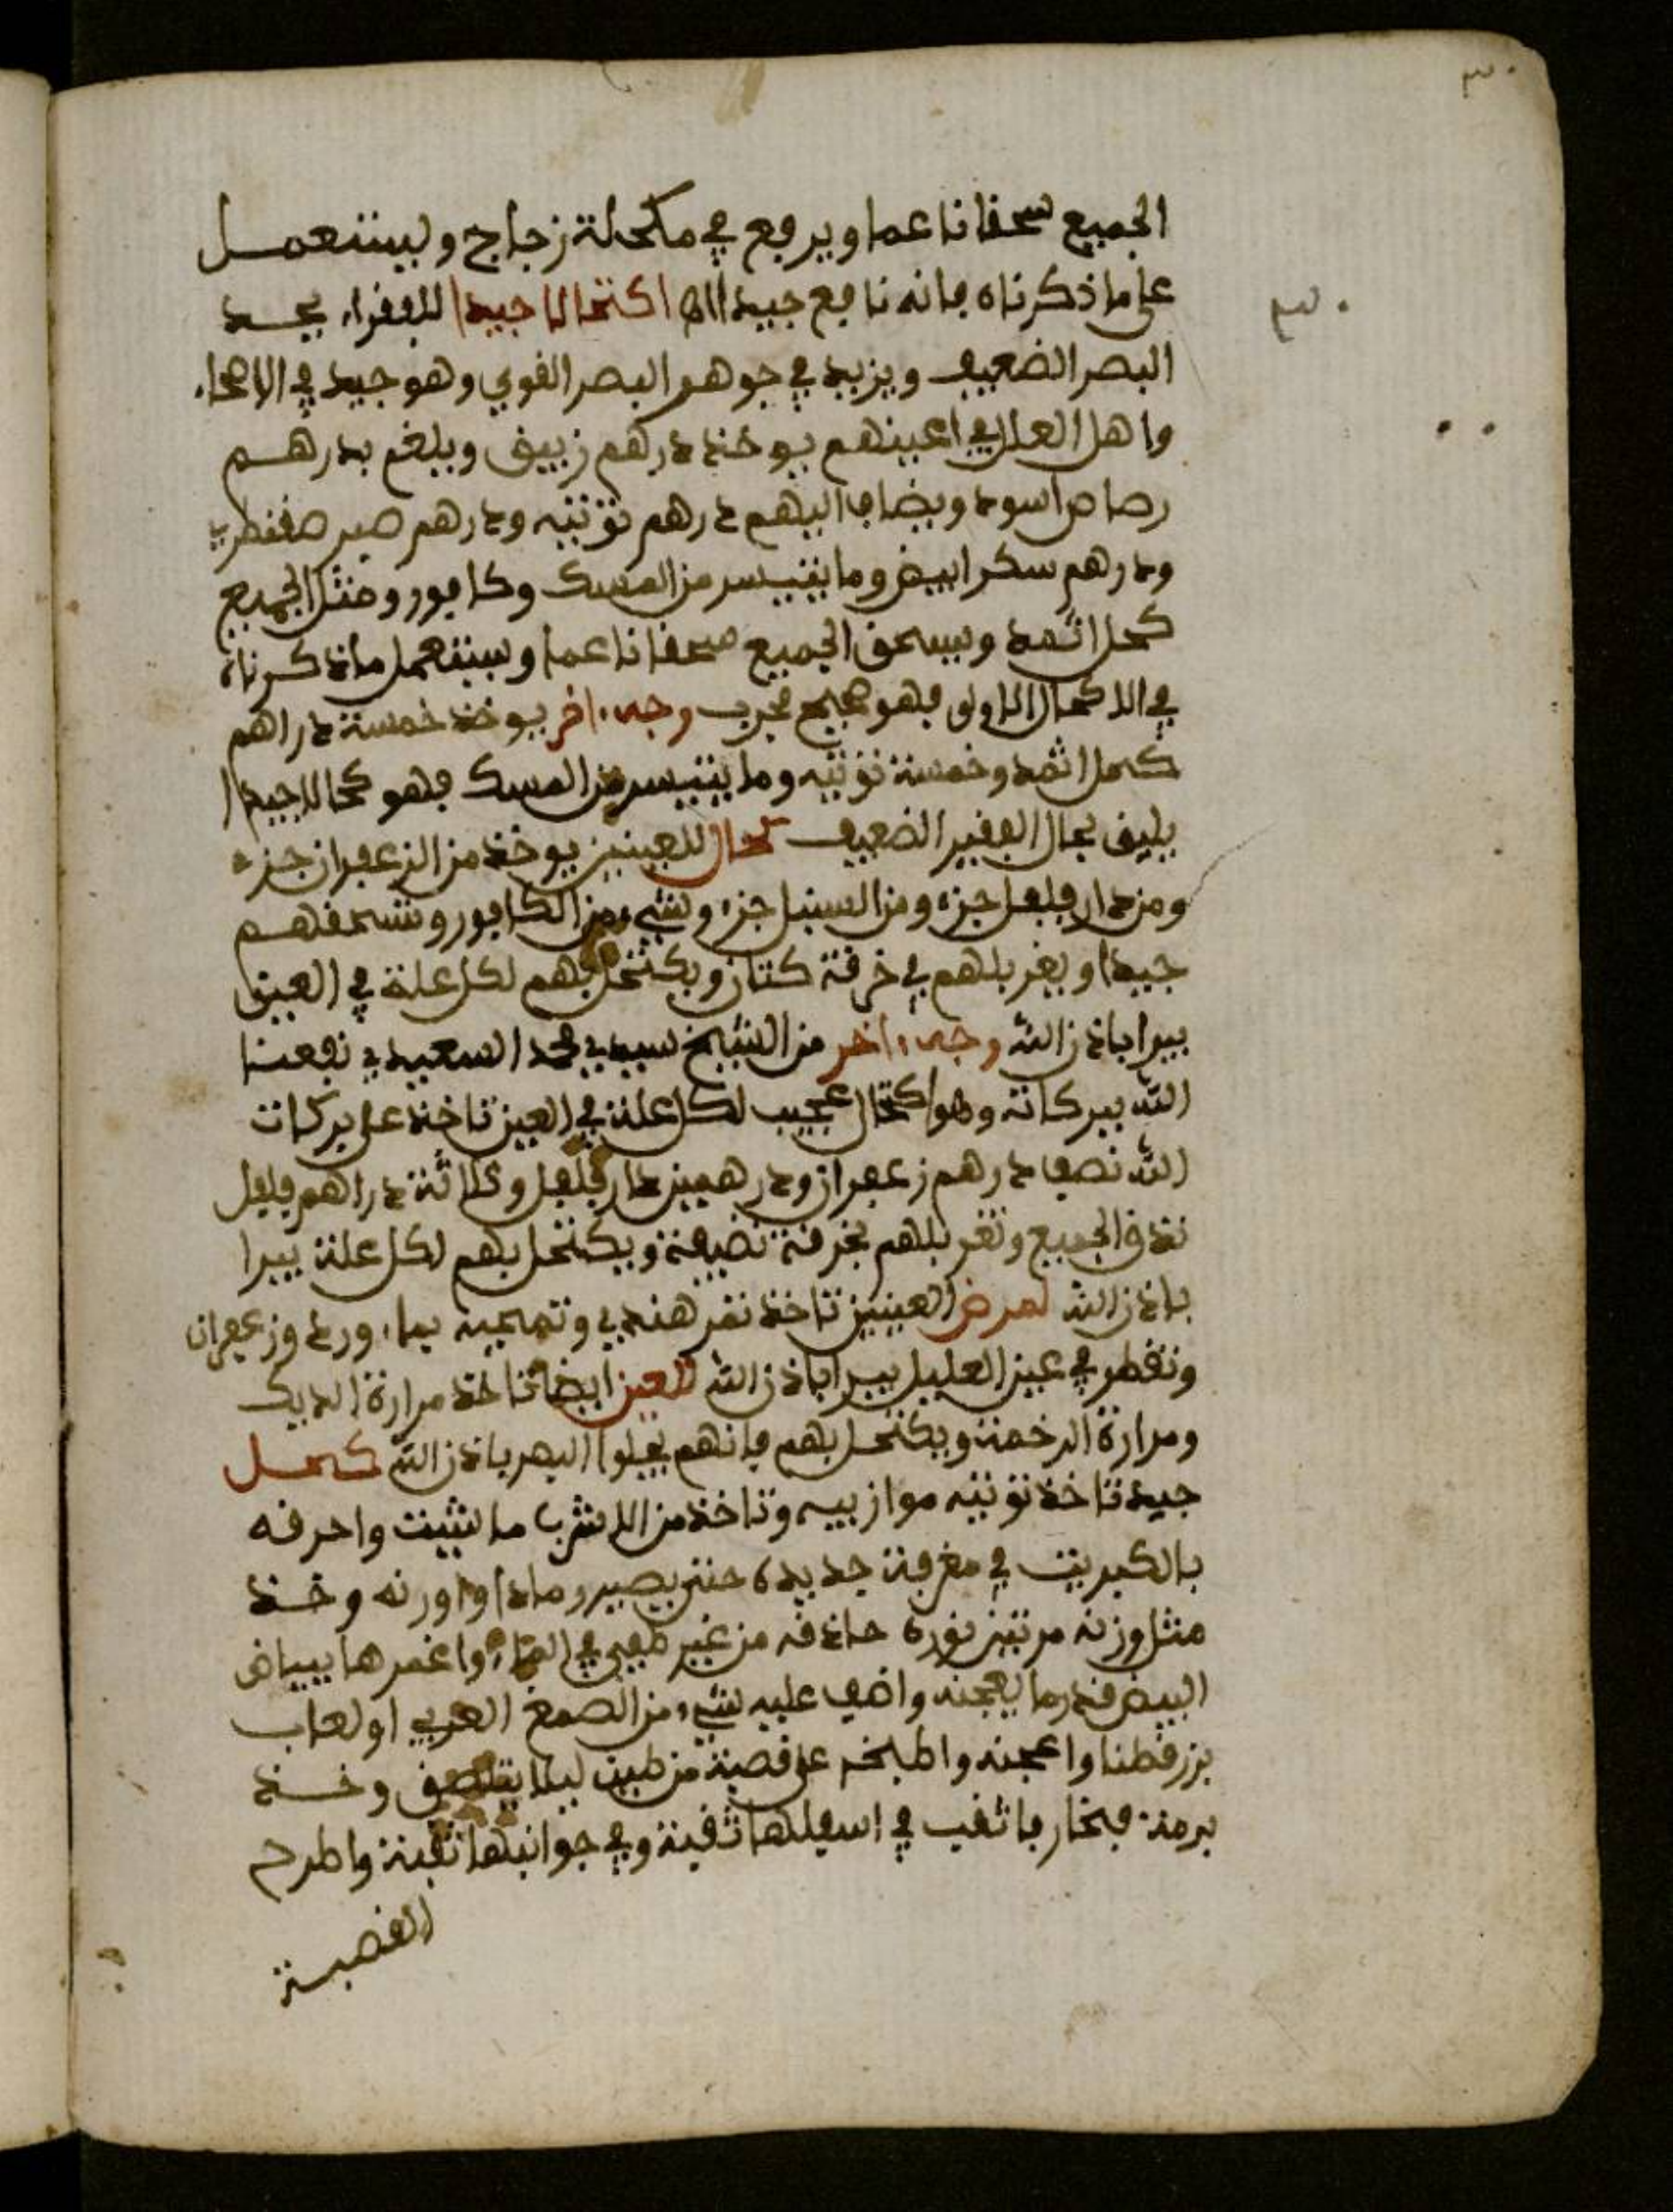 ٣٠
الجميع سحقا ناعما ويرفع في مكحلة زجاج ويستعمل
على ما ذكرناه فانه نافع جيد اكتحالا جيدا للفقراء يحد
٣٠
البصر الضعيف ويزيد في جوهر البصر القوي وهو جيد في الاصحاء
واهل العلل في اعينهم يوخذ درهم زيبق ويلغم بدرهم
رصاص اسود ويضاف اليهم درهم توتيه ودرهم صبر صقطري
ودرهم سكر ابيض وما يتيسر من المسك وكافور ومثل الجميع
كحل اثمد ويسحق الجميع صحقا ناعما ويستعمل ماذكرناه
في الاكحال الاولى فهو صحيح مجرب وجه ءاخر يوخذ خمسة دراهم
كحل اثمد وخمسة توتيه وما يتيسر من المسك فهو كحالا جيدا
يليق بحال الفقير الضعيف كحال للعينين يوخذ من الزعفران جزء
ومن دار فلفل جزء ومن السنبل جزء وشيء من الكافور وتسحقهم
جيدا ويغربلهم في خرقة كتان ويكتحل بهم لكل علة في العين
يبرا باذن الله وجه ءاخر من الشيخ سيدي محمد السعيدي نفعنا
الله ببركاته وهو اكتحال عجيب لكل علة في العين تاخذ على بركات
الله نصف درهم زعفران ودرهمين دار فلفل وثلاثة دراهم فلفل
تدق الجميع وتغربلهم بخرقة نضيفة ويكتحل بهم لكل علة يبرا
باذن الله لمرض العينين تاخذ تمر هندي وتمحيه بماء ورد وزعفران
وتقطر في عين العليل يبرا باذن الله للعين ايضا تاخذ مرارة الديك
ومرارة الرخمة ويكتحل بهم فانهم يجلوا البصر باذن الله كحل
جيد تاخذ توتيه موازبيه وتاخذ من الاشرب ما شيت واحرقه
بالكبريت في مغرفة جديدة حتى يصير رمادا واورنه وخذ
مثل وزنه مرتين نورة حاذقه من غير طفي في الماء واغمرها ببياض
البيض قدر ما يعجنه واضف عليه شيء من الصمغ العربي او لعاب
بزر قطنا واعجنه واطبخه على قصبة من طين ليلا يلتصق وخذ
برمة فخار فاثقب في اسفلها ثقبة وفي جوانبها ثقبة واطرح
القصبة